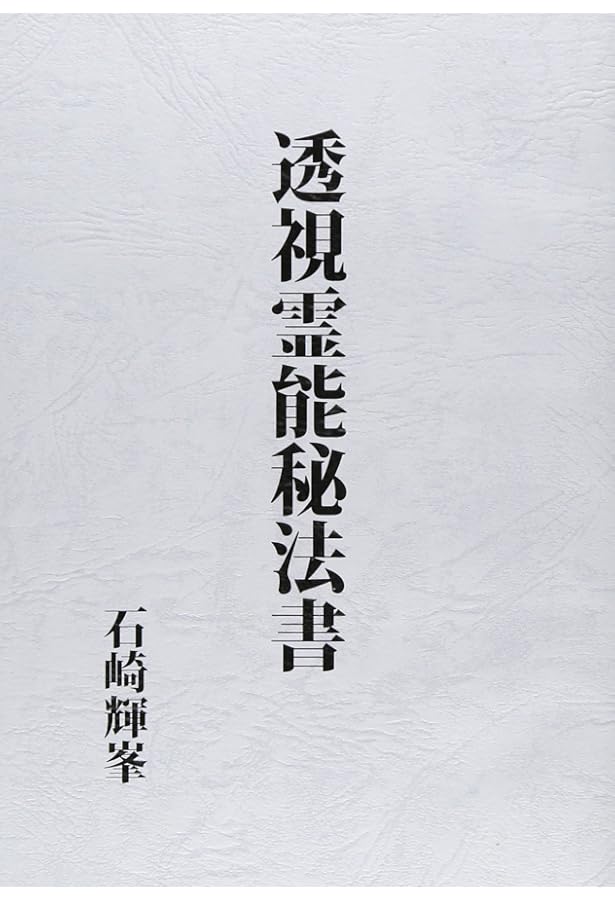 透視霊能秘法書
石崎輝峯